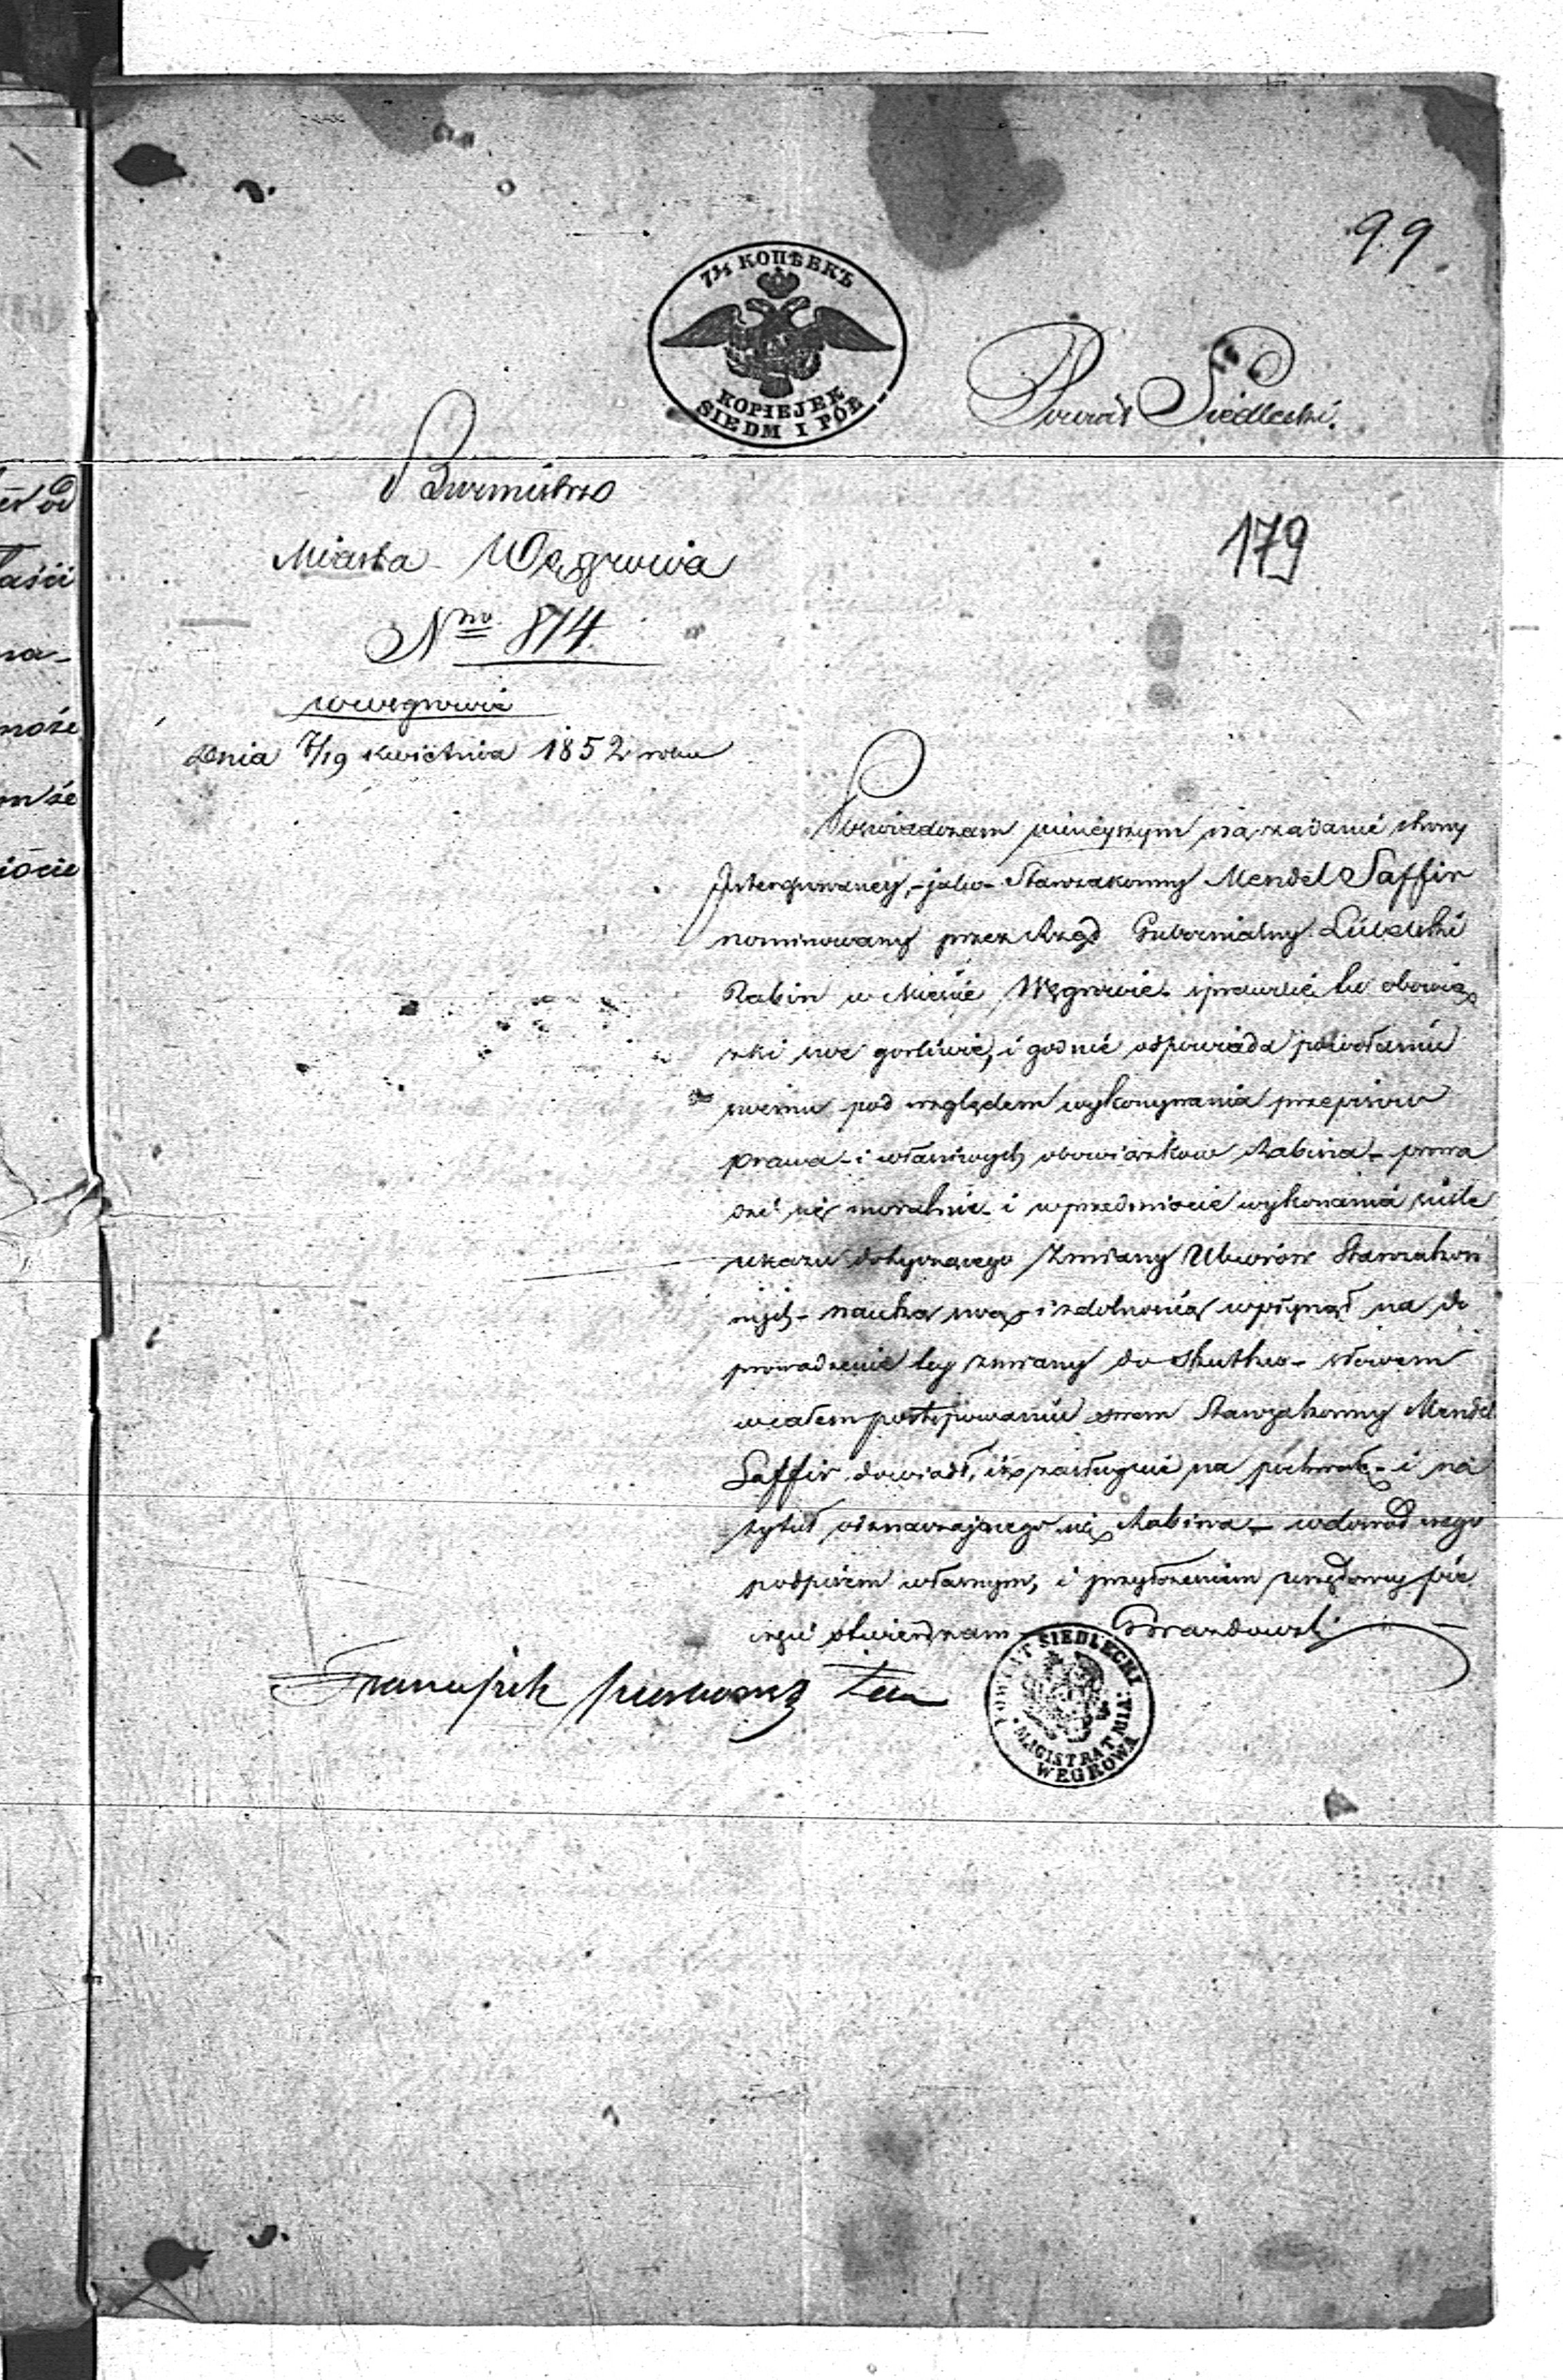 99
7½ КОПѢЕКЪ
KOPIEJEK
SIEDM I PÓŁ
Powiat Siedlecki.
Burmistrz
Miasta Węgrowa
179
Nro 814.
w Węgrowie
Dnia 7/19 Kwietnia 1852 roku
Poswiadczam ninieyszym na żądanie strony
Interesowaney, - jako - Starozakonny Mendel Saffir
nominowany przez Rząd Gubernialny Lubelski
Rabin w Mieście Węgrowie sprawuie tu obowią
zki swe gorliwie, i godnie odpowiada powołaniu
swemu pod względem wykonywania przepisow
prawa - i własciwych obowiązkow Rabina - prowa
dzi się moralnie - i w przedmiocie wykonania
ukazu dotyczącego Zmiany Ubiorów Starozakon
nych - nauką swą - i zdolnością wpłynął na do
prowadzenie tey zmiany do skutku - słowem
w całem postępowaniu swem Starozakonny Mendel
Saffir dowiódł, iż zasługuie na pochwałę - i na
tytuł odznaczającego się Rabina - w dowód czego
podpisem własnym, i przyłożeniem urzędowey pie
częci stwierdzam
POWIAT SIEDLECKI
MAGISTRAT MIA:
WĘGROWA